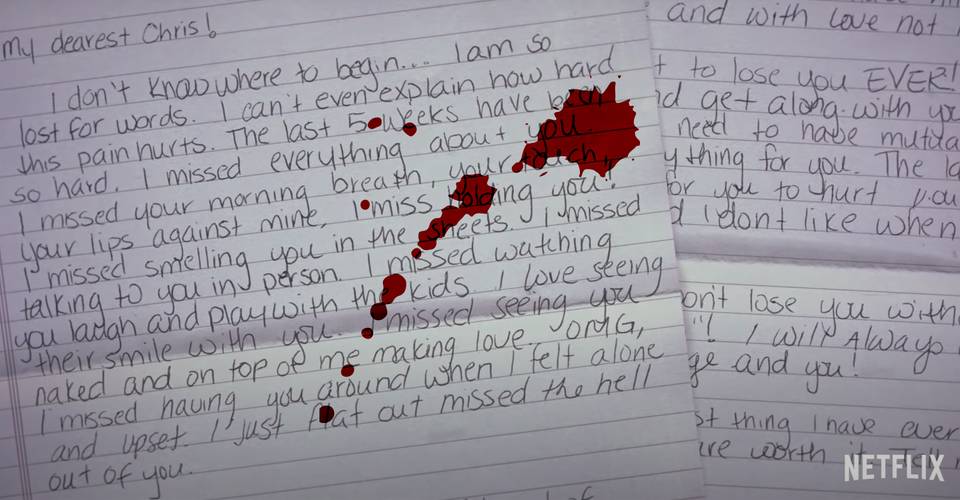 my dearest Chris!
I don't know where to begin... I am so
lost for words. I can't even explain how hard
this pain hurts. The last 5 weeks have been
so hard. I missed everything about you.
I missed your morning breath, your touch,
your lips against mine, I miss holding you!
I missed smelling you in the sheets. I missed
talking to you in person. I missed watching
you laugh and play with the kids. I love seeing
their smile with you. I missed seeing you
naked and on top of me making love. OMG,
I missed having you around when I felt alone
and upset. I just flat out missed the hell
out of you.
and with love not
to lose you EVER!
get along with
need to have
thing for you. The
for you to hurt
I dont like when
lose you
! I will Always
and you!
thing I have ever
worth it
NETFLIX